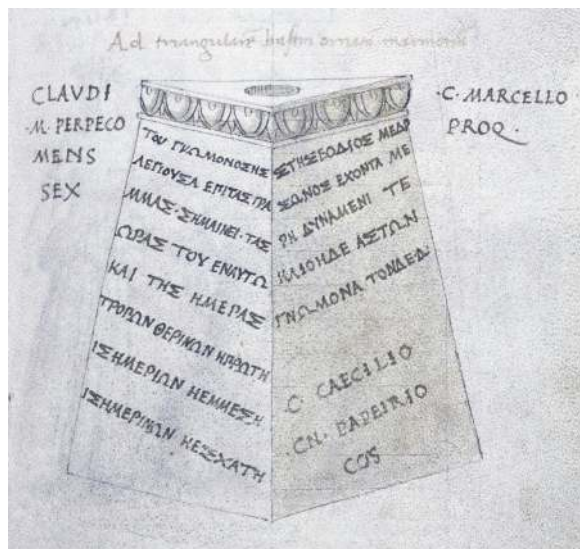 Ad triangularē basim
CLAVDI
·M· PERPECO
MENS
SEX
ΤΟΥ ΓΝΩΜΟΝΟΣΗΣ
ΛΕΓΙΟΥΣΑ ΕΠΙΤΑΣ ΓΡΑ
ΜΜΑΣ·ΣΗΜΑΙΝΕΙ·ΤΑΣ
ΩΡΑΣ ΤΟΥ ΕΝΑΥΤΩ
ΚΑΙ ΤΗΣ ΗΜΕΡΑΣ
ΤΡΟΠΩΝ ΘΕΡΙΝΩΝ ΗΠΡΩΤΗ
ΙΣΗΜΕΡΙΩΝ ΗΕΜΜΕΣΗ
ΙΣΗΜΕΡΙΝΩΝ ΗΕΣΧΑΤΗ
ΣΤΗΣΕΟΔΙΟΣ ΜΕΔΡ
ΣΩΝΟΣ ΕΧΟΝΤΑ ΜΕ
ΡΗ ΔΥΝΑΜΕΝΙ ΤΕ
ΗΛΙΟΗΔΕ ΑΣΤΩΝ
ΓΝΩΜΟΝΑ ΤΟΝΔΕΔ·
C CAECILIO
·CN· PAPEIRIO
COS
·C· MARCELLO
PROQ·